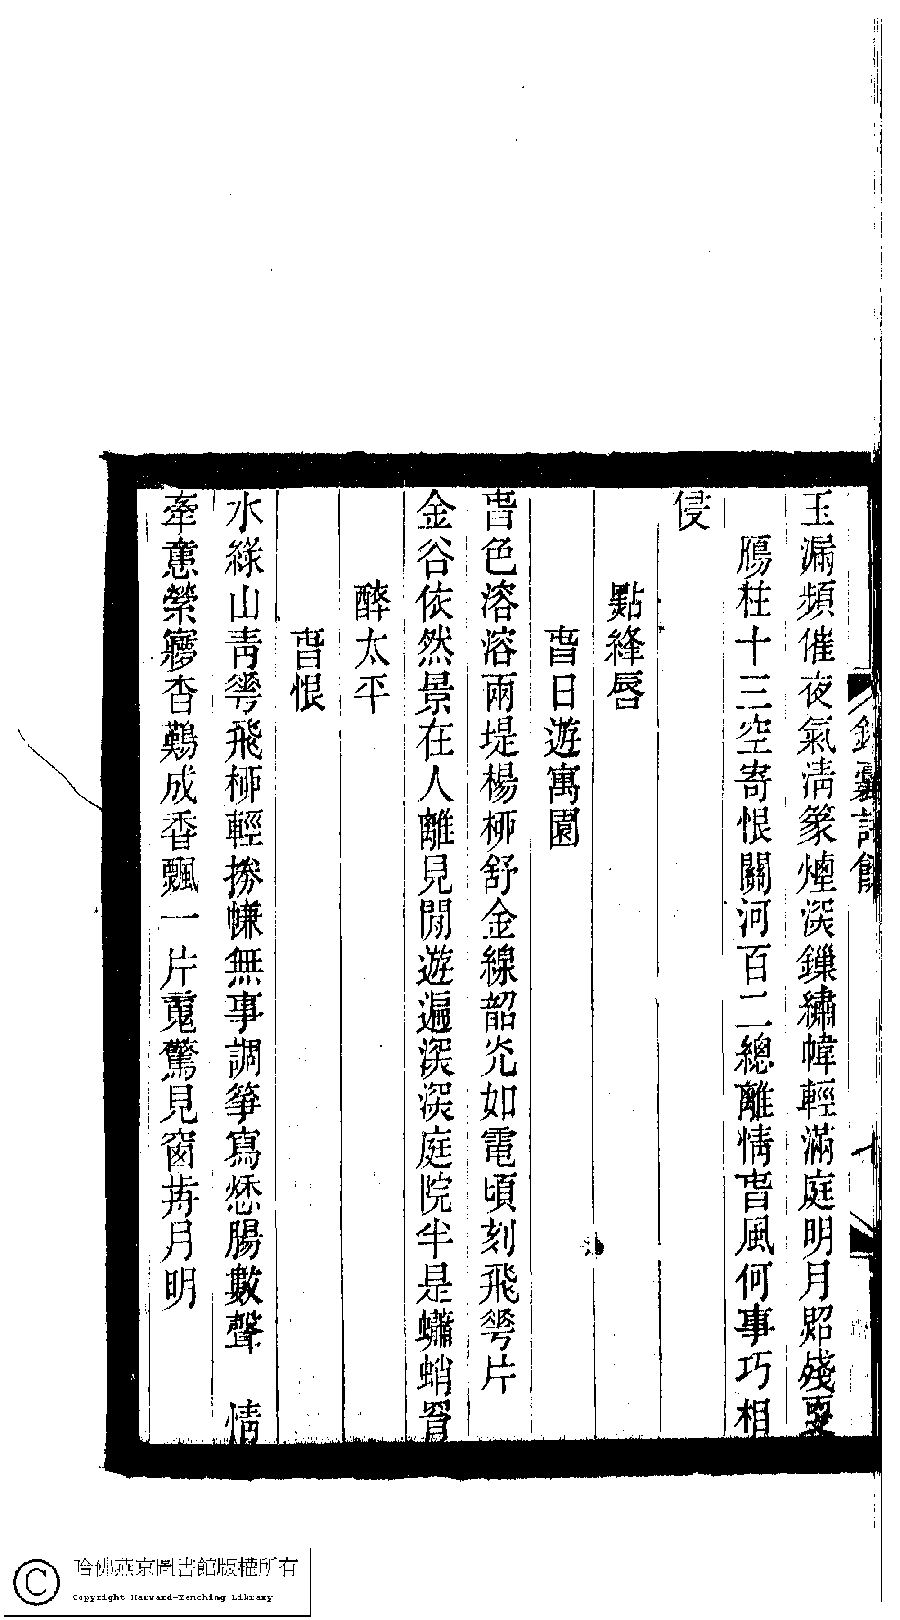 錦囊詩餘
十
玉漏頻催夜氣清篆煙深鏁繡幃輕滿庭明月照殘更
鴈柱十三空寄恨關河百二總離情旾風何事巧相
侵
點絳唇
旾日遊寓園
旾色溶溶兩堤楊柳舒金線韶光如電頃刻飛蕚片
金谷依然景在人離見閒遊遍深深庭院半是蠨蛸罥
醉太平
旾恨
水綠山青蕚飛柳輕捲㡘無事調箏寫愁腸數聲　情
牽意縈㝱杳難成香飄一片䰟驚見窗歬月明
哈佛燕京圖書館版權所有
Copyright Harvard-Yenching Library